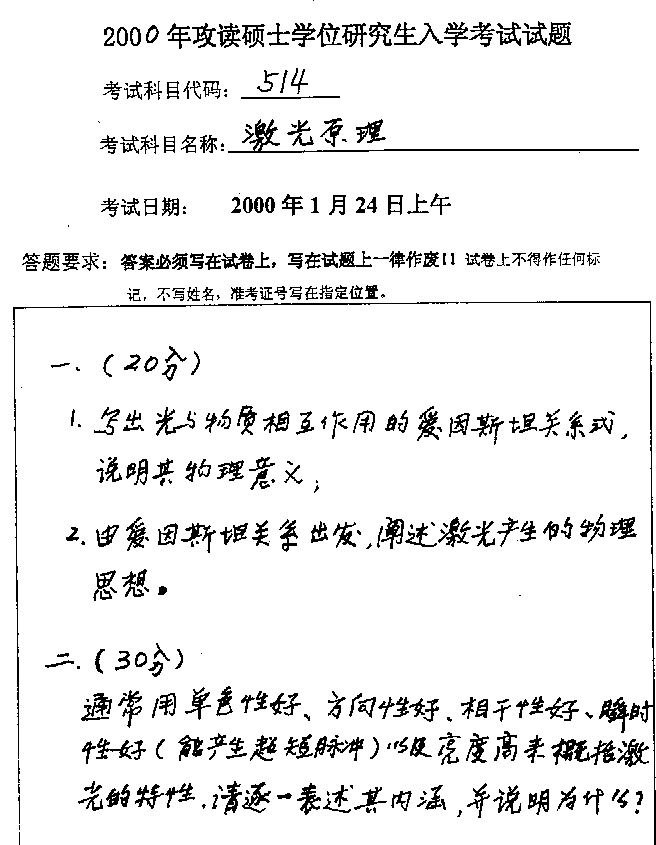 2000年攻读硕士学位研究生入学考试试题
考试科目代码：514
考试科目名称：激光原理
考试日期： 2000年1月24日上午
答题要求：答案必须写在试卷上，写在试题上一律作废！！试卷上不得作任何标
记，不写姓名，准考证号写在指定位置。
一.（20分）
1. 写出光与物质相互作用的爱因斯坦关系式，
说明其物理意义；
2. 由爱因斯坦关系出发，阐述激光产生的物理
思想。
二.（30分）
通常用单色性好、方向性好、相干性好、瞬时
性好（能产生超短脉冲）以及亮度高来概括激
光的特性.请逐一表述其内涵，并说明为什么？